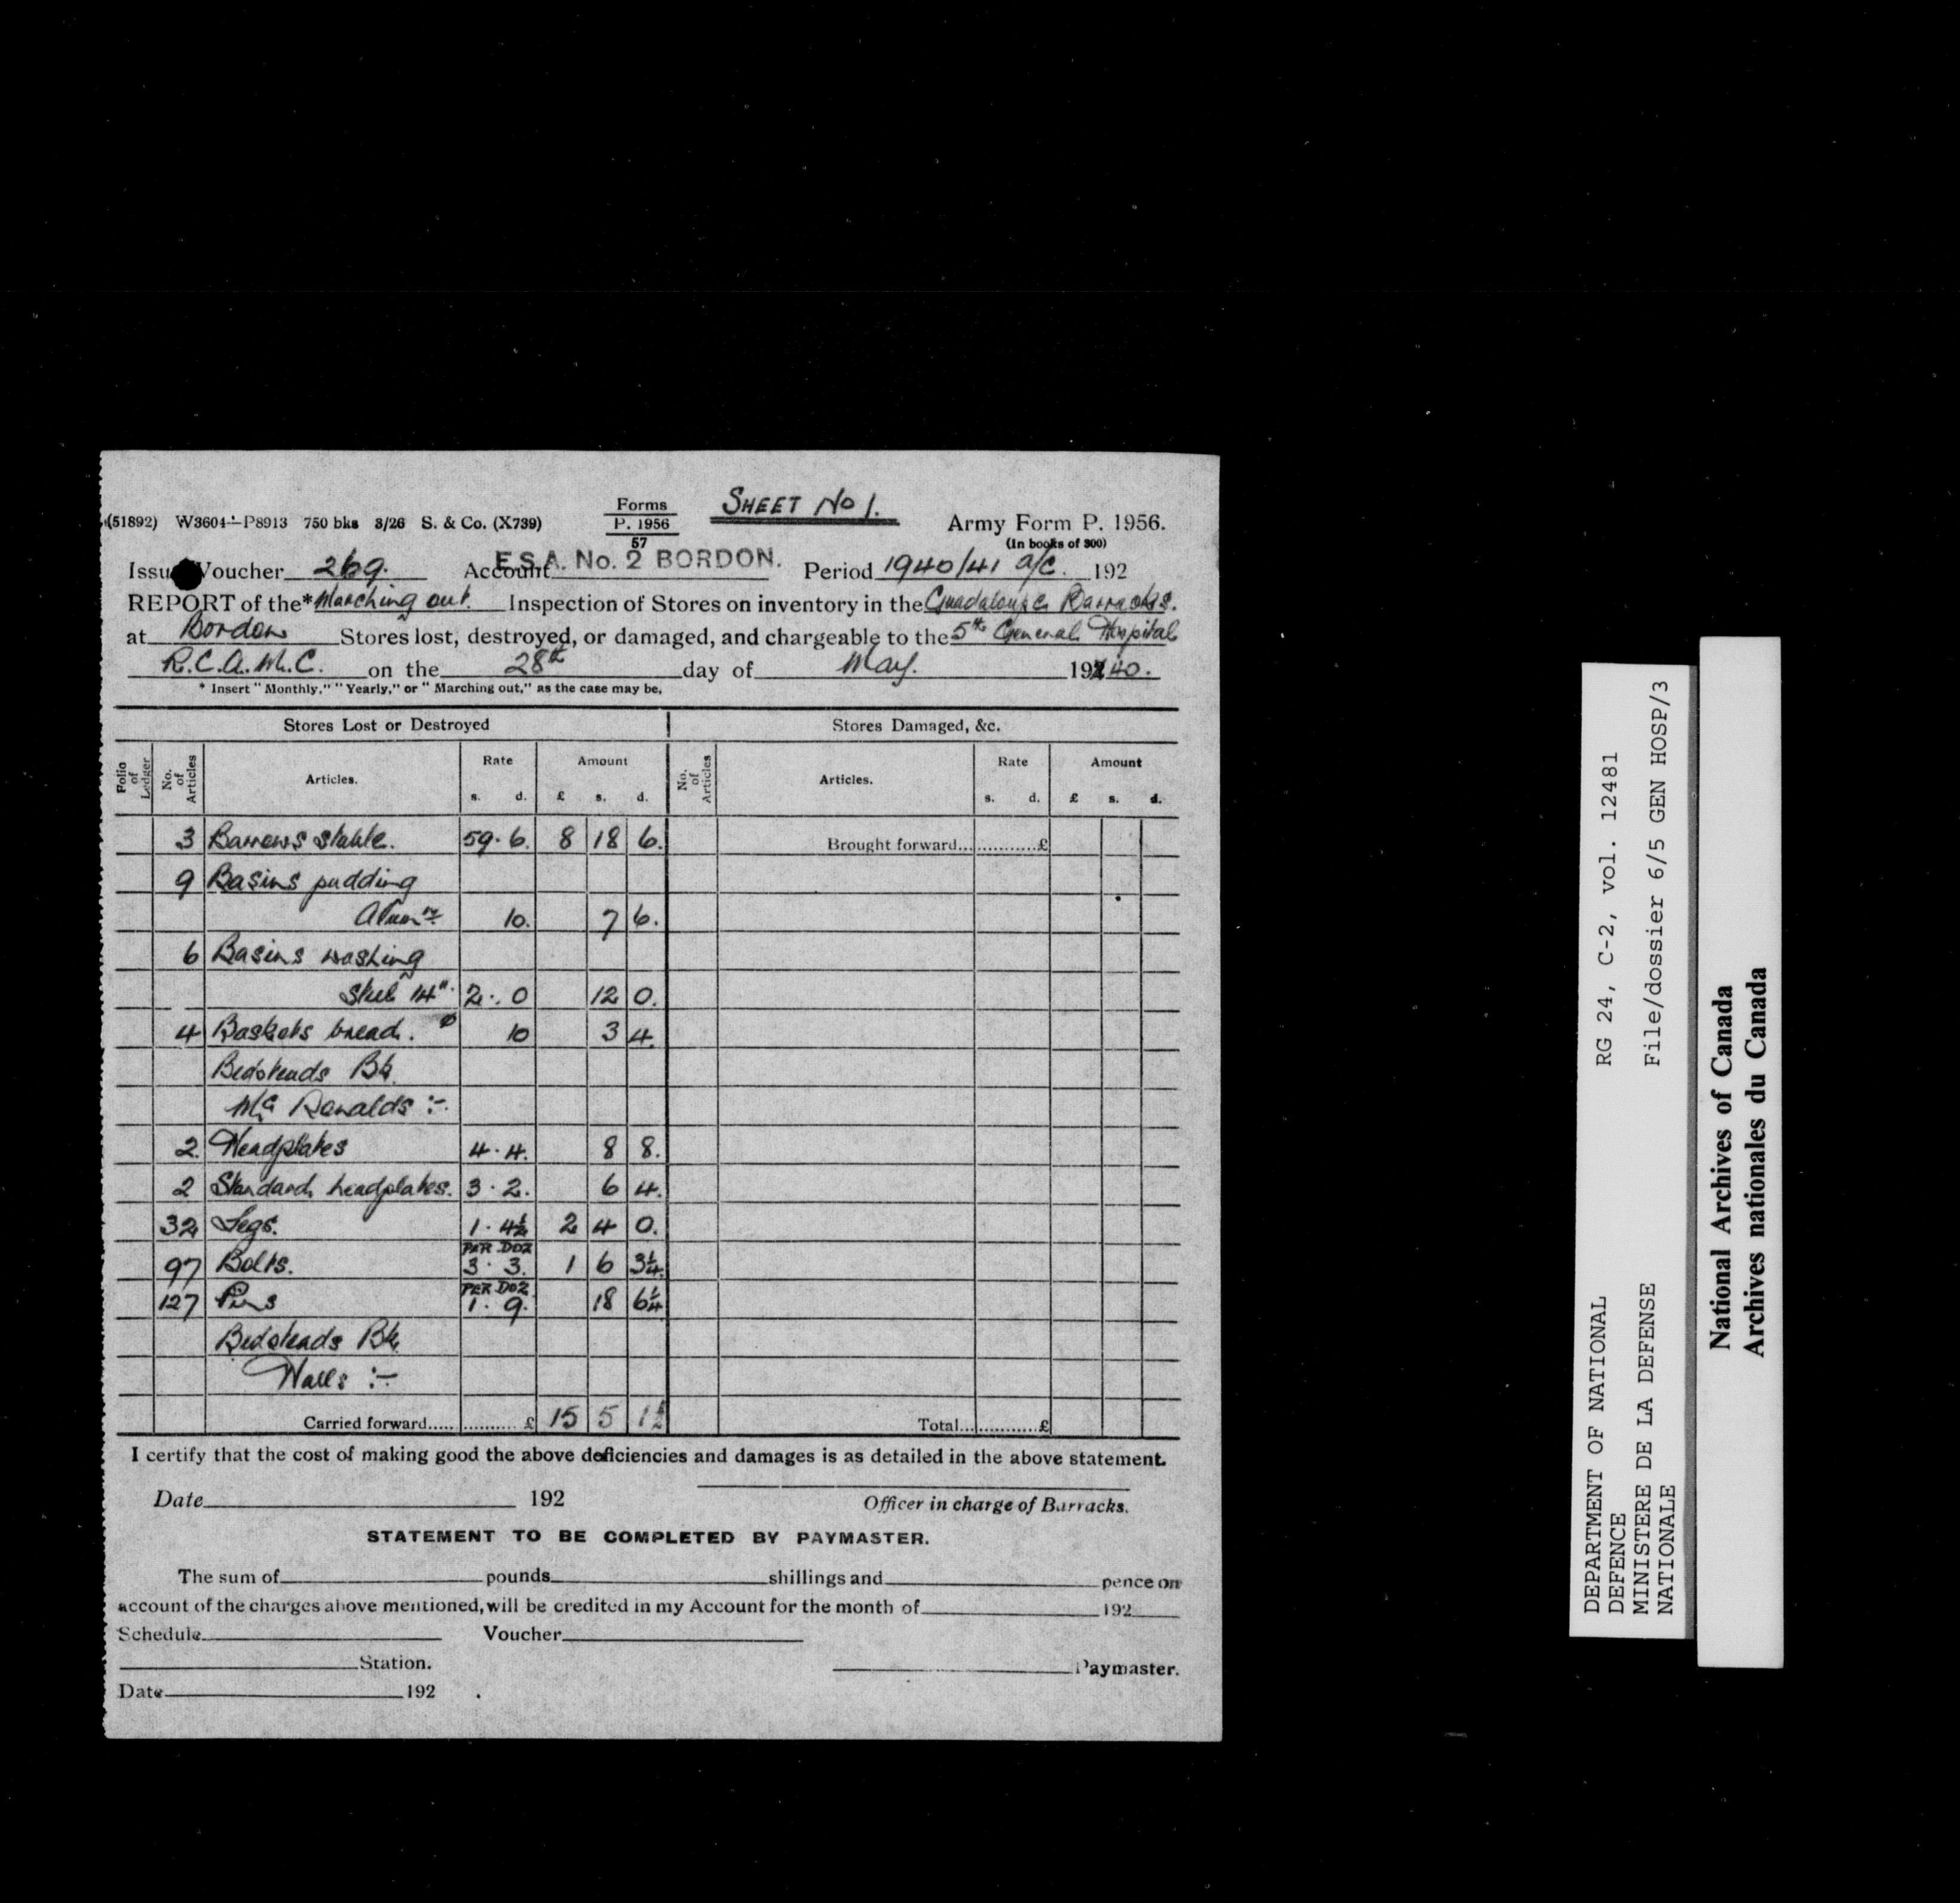 SHEET No 1.
(51892) W3604—P8913 750 bks 3/26 S. & Co. (X739) Forms P. 1956 57 Army Form P. 1956.
(In books of 300)
Issue Voucher 269. Account E.S.A. No. 2 BORDON. Period 1940/41 a/c. 192
REPORT of the* Marching out. Inspection of Stores on inventory in the Guadaloupe Barracks.
at Bordon Stores lost, destroyed, or damaged, and chargeable to the 5th General Hospital
R.C.A.M.C. on the 28th day of May. 19240.
* Insert "Monthly," "Yearly," or "Marching out," as the case may be.
Stores Lost or Destroyed Stores Damaged, &c.
Folio of Ledger No. of Articles Articles. Rate Amount No. of Articles Articles. Rate Amount
s. d. £ s. d. s. d. £ s. d.
3 Barrows stable. 59. 6. 8 18 6. Brought forward...............£
9 Basins pudding
Alumn 10. 7 6.
6 Basins washing
Steel 14". 2. 0 12 0.
4 Baskets bread. 10 3 4.
Bedsteads Bk.
McDonalds :-.
2. Headplates 4. 4. 8 8.
2 Standard headplates. 3. 2. 6 4.
32 Legs. 1. 4½ 2 4 0.
97 Bolts. PER DOZ 3. 3. 1 6 3¼.
127 Pins PER DOZ. 1. 9. 18 6¼
Bedsteads Bk.
Walls :-
Carried forward............... £ 15 5 1½ Total...............£
I certify that the cost of making good the above deficiencies and damages is as detailed in the above statement.
Date 192 Officer in charge of Barracks.
STATEMENT TO BE COMPLETED BY PAYMASTER.
The sum of pounds shillings and pence on
account of the charges above mentioned, will be credited in my Account for the month of 192
Schedule Voucher
Station. Paymaster.
Date 192 .
DEPARTMENT OF NATIONAL RG 24, C-2, vol. 12481
DEFENCE
MINISTERE DE LA DEFENSE File/dossier 6/5 GEN HOSP/3
NATIONALE
National Archives of Canada
Archives nationales du Canada